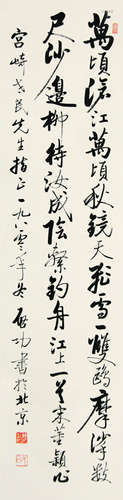 萬頃滄江萬頃秋鏡天飛雪一雙鷗摩挲數
尺沙邊柳待汝成陰繫釣舟江上一首宋董穎作
宮崎成民先生指正一九八零年冬啟功書於北京